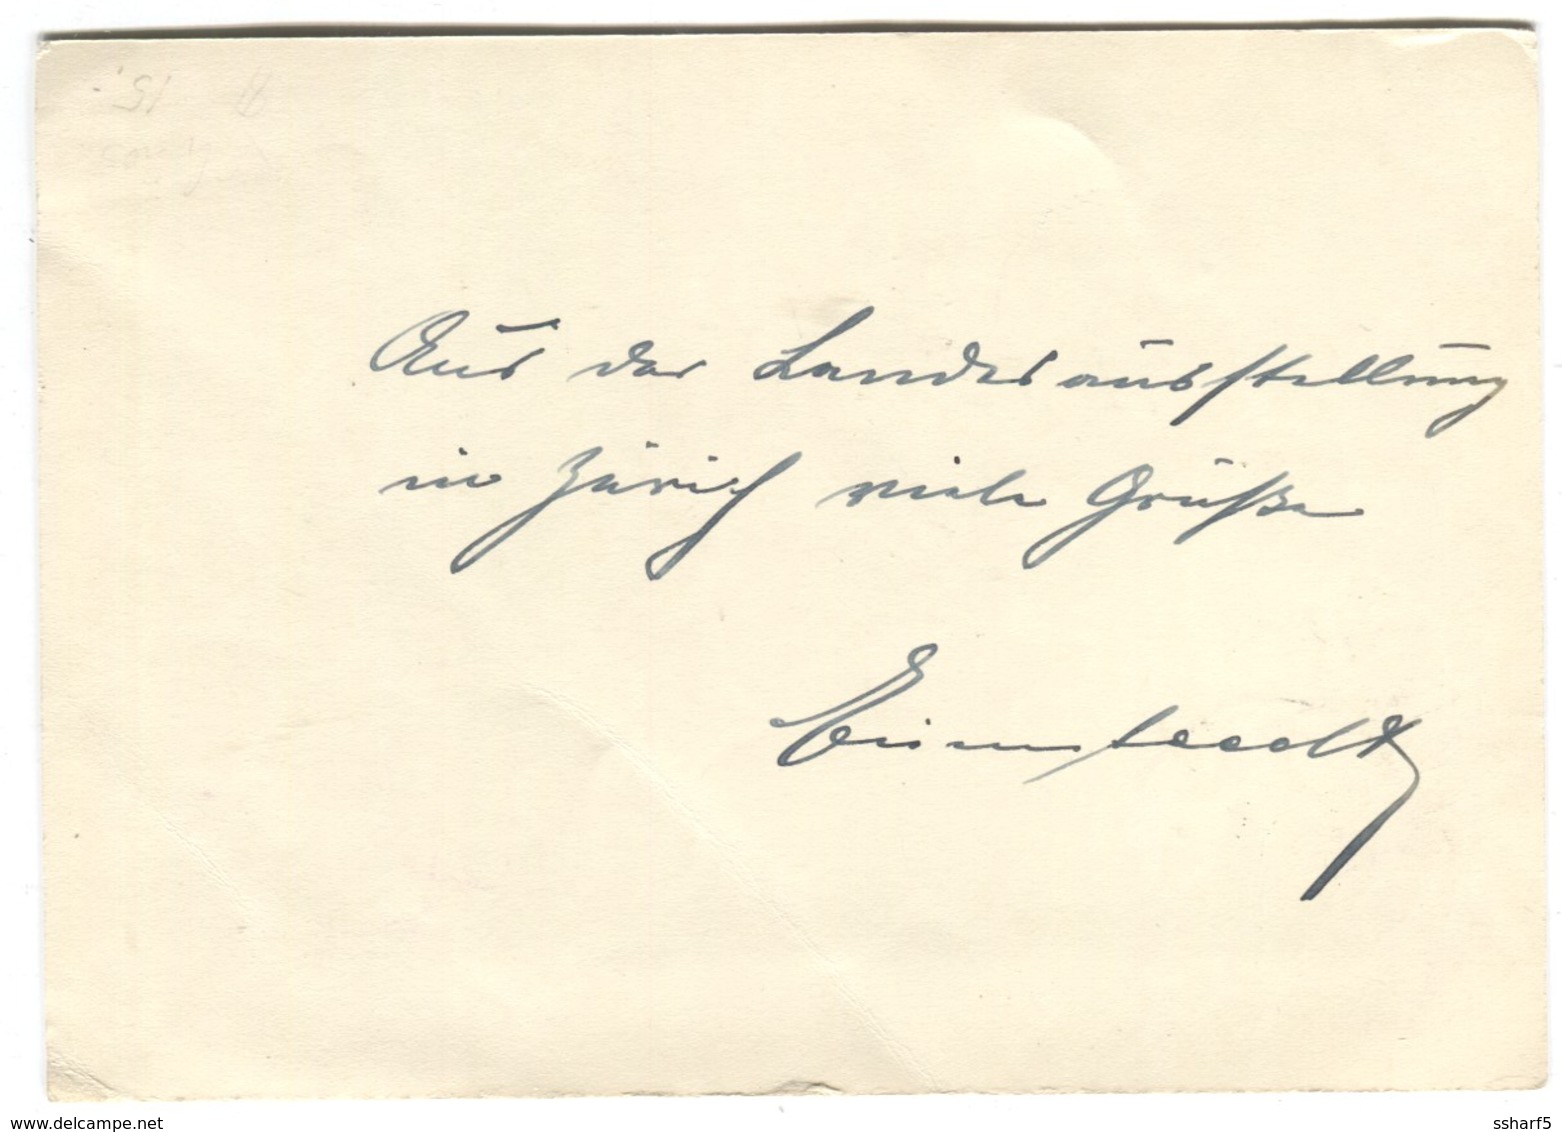 Aus der Landesausstellung
in Zürich viele Grüße
www.delcampe.net
ssharf5